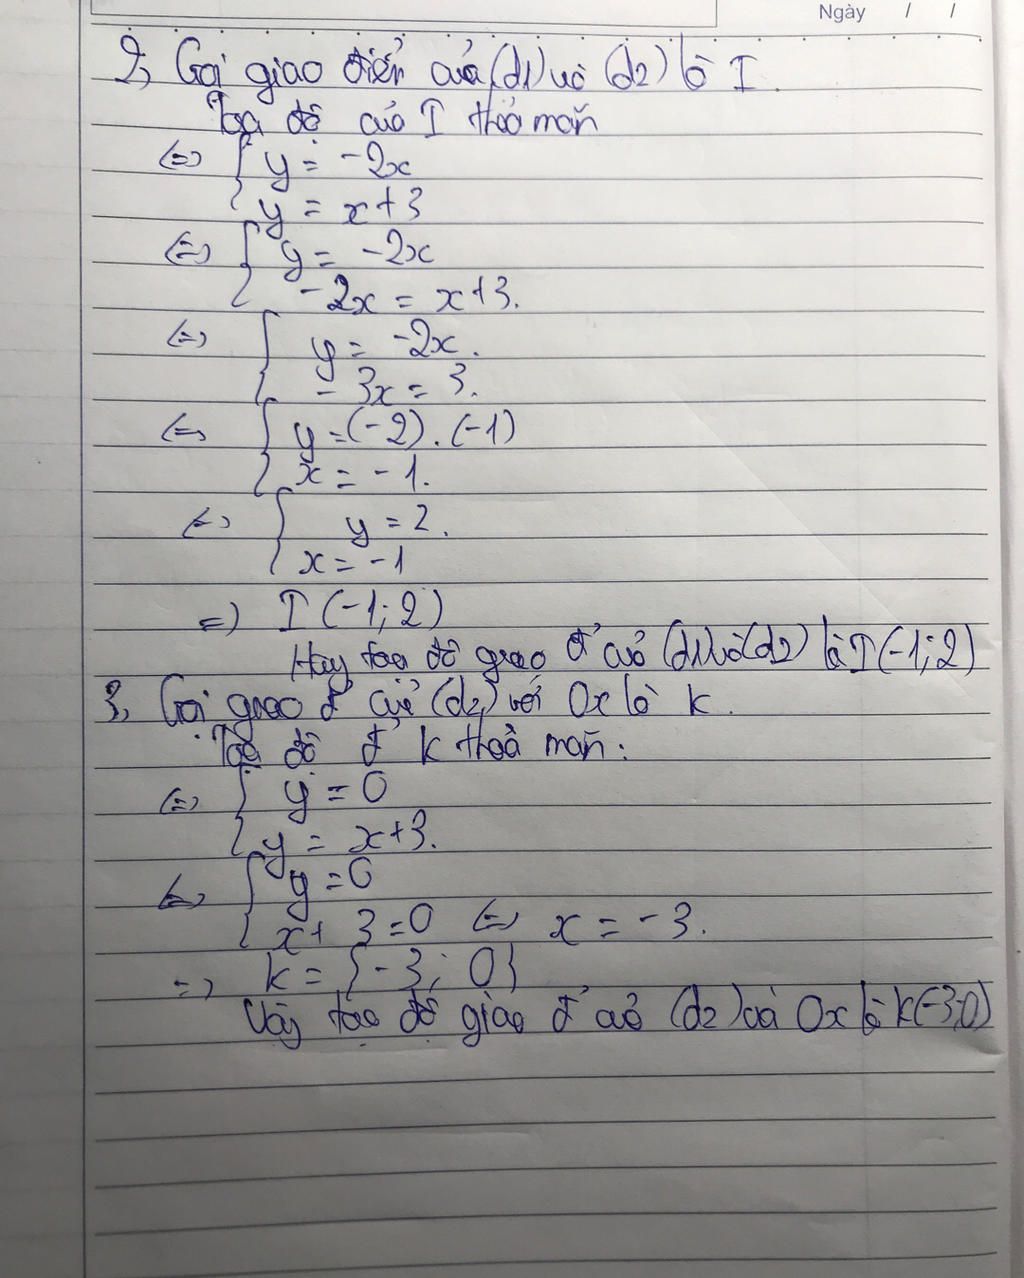 Ngày / /
2, Gọi giao điểm của (d1) và (d2) là I.
Toạ độ của I thoả mãn
<=> { y = -2x
y = x+3
<=> { y = -2x
-2x = x+3.
<=> { y = -2x.
- 3x = 3.
<=> { y = (-2) . (-1)
x = -1.
<=> { y = 2.
x = -1
=> I (-1; 2)
Hay toạ độ giao đ' của (d1) và (d2) là I (-1; 2)
3, Gọi giao đ' của (d2) với Ox là k.
Toạ độ đ' k thoả mãn:
<=> { y = 0
y = x+3.
<=> { y = 0
x + 3 = 0 <=> x = -3.
=> k = {-3; 0}
Vậy toạ độ giao đ' của (d2) và Ox là k(-3;0)